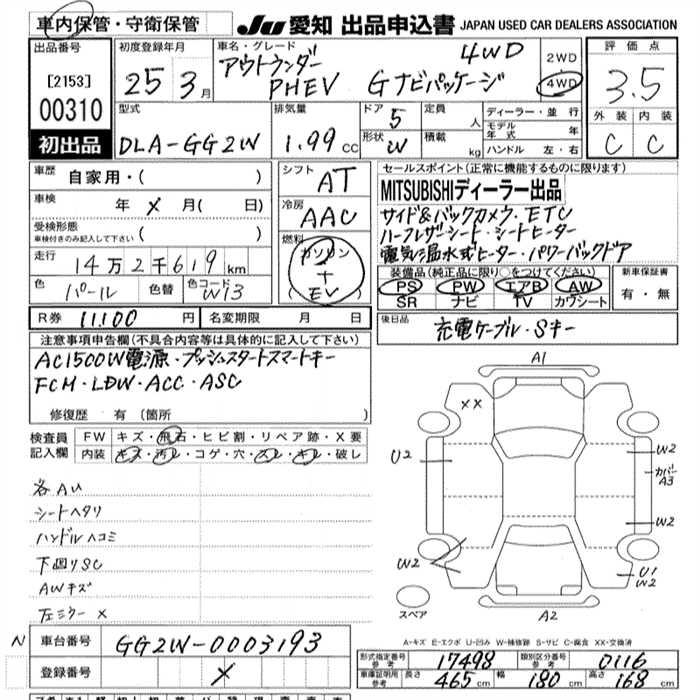 車内保管・守衛保管
JU 愛知 出品申込書 JAPAN USED CAR DEALERS ASSOCIATION
出品番号
[2153]
00310
初出品
初度登録年月
25 3月
車名・グレード
アウトランダー 4WD
PHEV Gナビパッケージ
2WD
4WD
評価点
3.5
外装 内装
C C
型式
DLA-GG2W
排気量
1.99cc
ドア 5
形状 W
定員 人
積載 kg
ディーラー・並行
モデル年式 年
ハンドル 左・右
車歴 自家用・( )
車検 年 × 月( 日)
受検形態
車検付きのみ記入して下さい ( )
走行 14万2千619km
色 パール 色替 色コード W13
シフト AT
冷房 AAC
燃料
ガソリン
+
(EV)
セールスポイント(正常に機能するものに限ります)
MITSUBISHIディーラー出品
サイド&バックカメラ・ETC
ハーフレザーシート・シートヒーター
電気温水式ヒーター・パワーバックドア
装備品(純正品に限り○をつけてください)
PS PW エアB AW
SR ナビ TV カワシート
新車保証書
有・無
R券 11,100円 名変期限 月 日
後日品 充電ケーブル・Sキー
注意事項申告欄(不具合内容等は具体的に記入して下さい)
AC1500W電源・プッシュスタートスマートキー
FCM・LDW・ACC・ASC
修復歴 有(箇所 )
検査員記入欄
FW キズ・飛石・ヒビ割・リペア跡・X要
内装 キズ・汚レ・コゲ・穴・スレ・キレ・破レ
各AU
シートヘタリ
ハンドルヘコミ
下回りSC
AWキズ
左ミラー×
A1
××
U2
W2
カバー
A3
W2
W2
U1
W2
スペア
A2
A-キズ E-エクボ U-凹み W-補修跡 S-サビ C-腐食 XX-交換済
N 車台番号 GG2W-0003193
登録番号 ×
形式指定番号
参考
17498
類別区分番号
参考
0116
車庫証明用
参考
長さ 465cm 幅 180cm 高さ 168cm